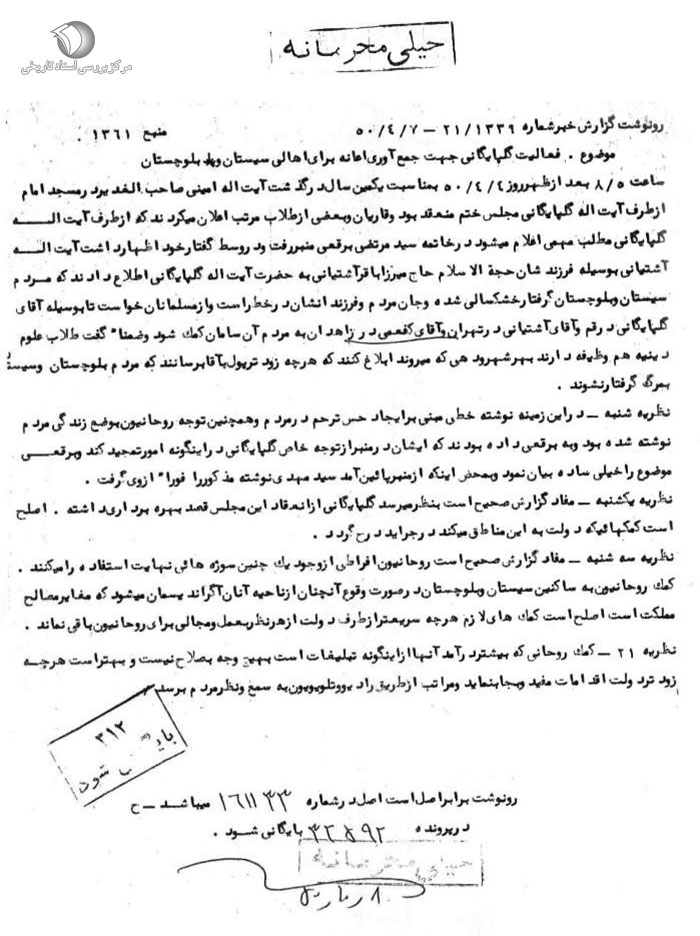 مرکز بررسی اسناد تاریخی
خیلی محرمانه
رونوشت گزارش خبر شماره ۲۱/۱۳۳۹ – ۵۰/۴/۷ منبع ۱۳۶۱
موضوع . فعالیت گلپایگانی جهت جمع آوری اعانه برای اهالی سیستان و بلوچستان
ساعت ۸/۵ بعد از ظهر روز ۵۰/۴/۴ بمناسبت یکمین سال درگذشت آیت اله امینی صاحب الغدیر در مسجد امام
از طرف آیت اله گلپایگانی مجلس ختم منعقد بود و قاریان و بعضی از طلاب مرتب اعلان میکردند که از طرف آیت الــه
گلپایگانی مطلب مهمی اعلام میشود در خاتمه سید مرتضی برقعی منبر رفت و در وسط گفتار خود اظهار داشت آیت الــه
آشتیانی بوسیله فرزند شان حجة الاسلام حاج میرزا باقر آشتیانی به حضرت آیت اله گلپایگانی اطلاع دادند که مــردم
سیستان و بلوچستان گرفتار خشکسالی شده و جان مردم و فرزند انشان در خطر است و از مسلمانان خواست تا بوسیله آقای
گلپایگانی در قم و آقای آشتیانی در تهران و آقای کفعمی در زاهدان به مردم آن سامان کمک شود وضمنا" گفت طلاب علوم
دینیه هم وظیفه دارند بهر شهر ودهی که میروند ابلاغ کنند که هرچه زود تر پول بآقا برسانند که مردم بلوچستان و
بمرگ گرفتار نشوند .
نظریه شنبه – در این زمینه نوشته خطی مبنی بر ایجاد حس ترحم در مردم و همچنین توجه روحانیون بوضع زندگی مردم
نوشته شده بود و به برقعی داده بودند که ایشان در منبر از توجه خاص گلپایگانی در اینگونه امور تمجید کند و برقعــی
موضوع را خیلی ساده بیان نمود و بمحض اینکه از منبر پائین آمد سید مهدی نوشته مذکور را فورا" از وی گرفت .
نظریه یکشنبه – مفاد گزارش صحیح است بنظر میرسد گلپایگانی از انعقاد این مجلس قصد بهره برداری داشته . اصلح
است کمکهائیکه دولت به این مناطق میکند در جراید درج گردد .
نظریه سه شنبه – مفاد گزارش صحیح است روحانیون افراطی از وجود یک چنین سوژه هائی نهایت استفاده را میکنند .
کمک روحانیون به ساکنین سیستان و بلوچستان در صورت وقوع آنچنان از ناحیه آنان آگراندیسمان میشود که مغایر مصالح
مملکت است اصلح است کمک های لازم هرچه سریعتر از طرف دولت از هر نظر بعمل و مجالی برای روحانیون باقی نماند .
نظریه ۲۱ – کمک روحانی که بیشتر درآمد آنها از اینگونه تبلیغات است بهیچ وجه بصلاح نیست و بهتر است هرچــه
زود تر دولت اقدامات مفید و بجا بنماید و مراتب از طریق رادیو و تلویزیون به سمع و نظر مردم برسد
۳۱۲
شود
رونوشت برابر اصل است اصل در شماره ۱۶۱۱۳۳ میباشد – ح
در پرونده ۳۲۵۹۲ بایگانی شود .
خیلی محرمانه